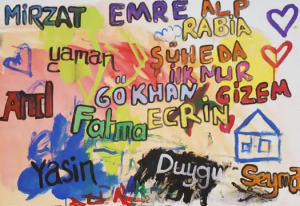 MİRZAT EMRE ALP
RABİA
yaman ŞÜHEDA
İLKNUR
Anıl GÖKHAN GİZEM
Fatma ECRİN
Yasin Duygu Şeyma